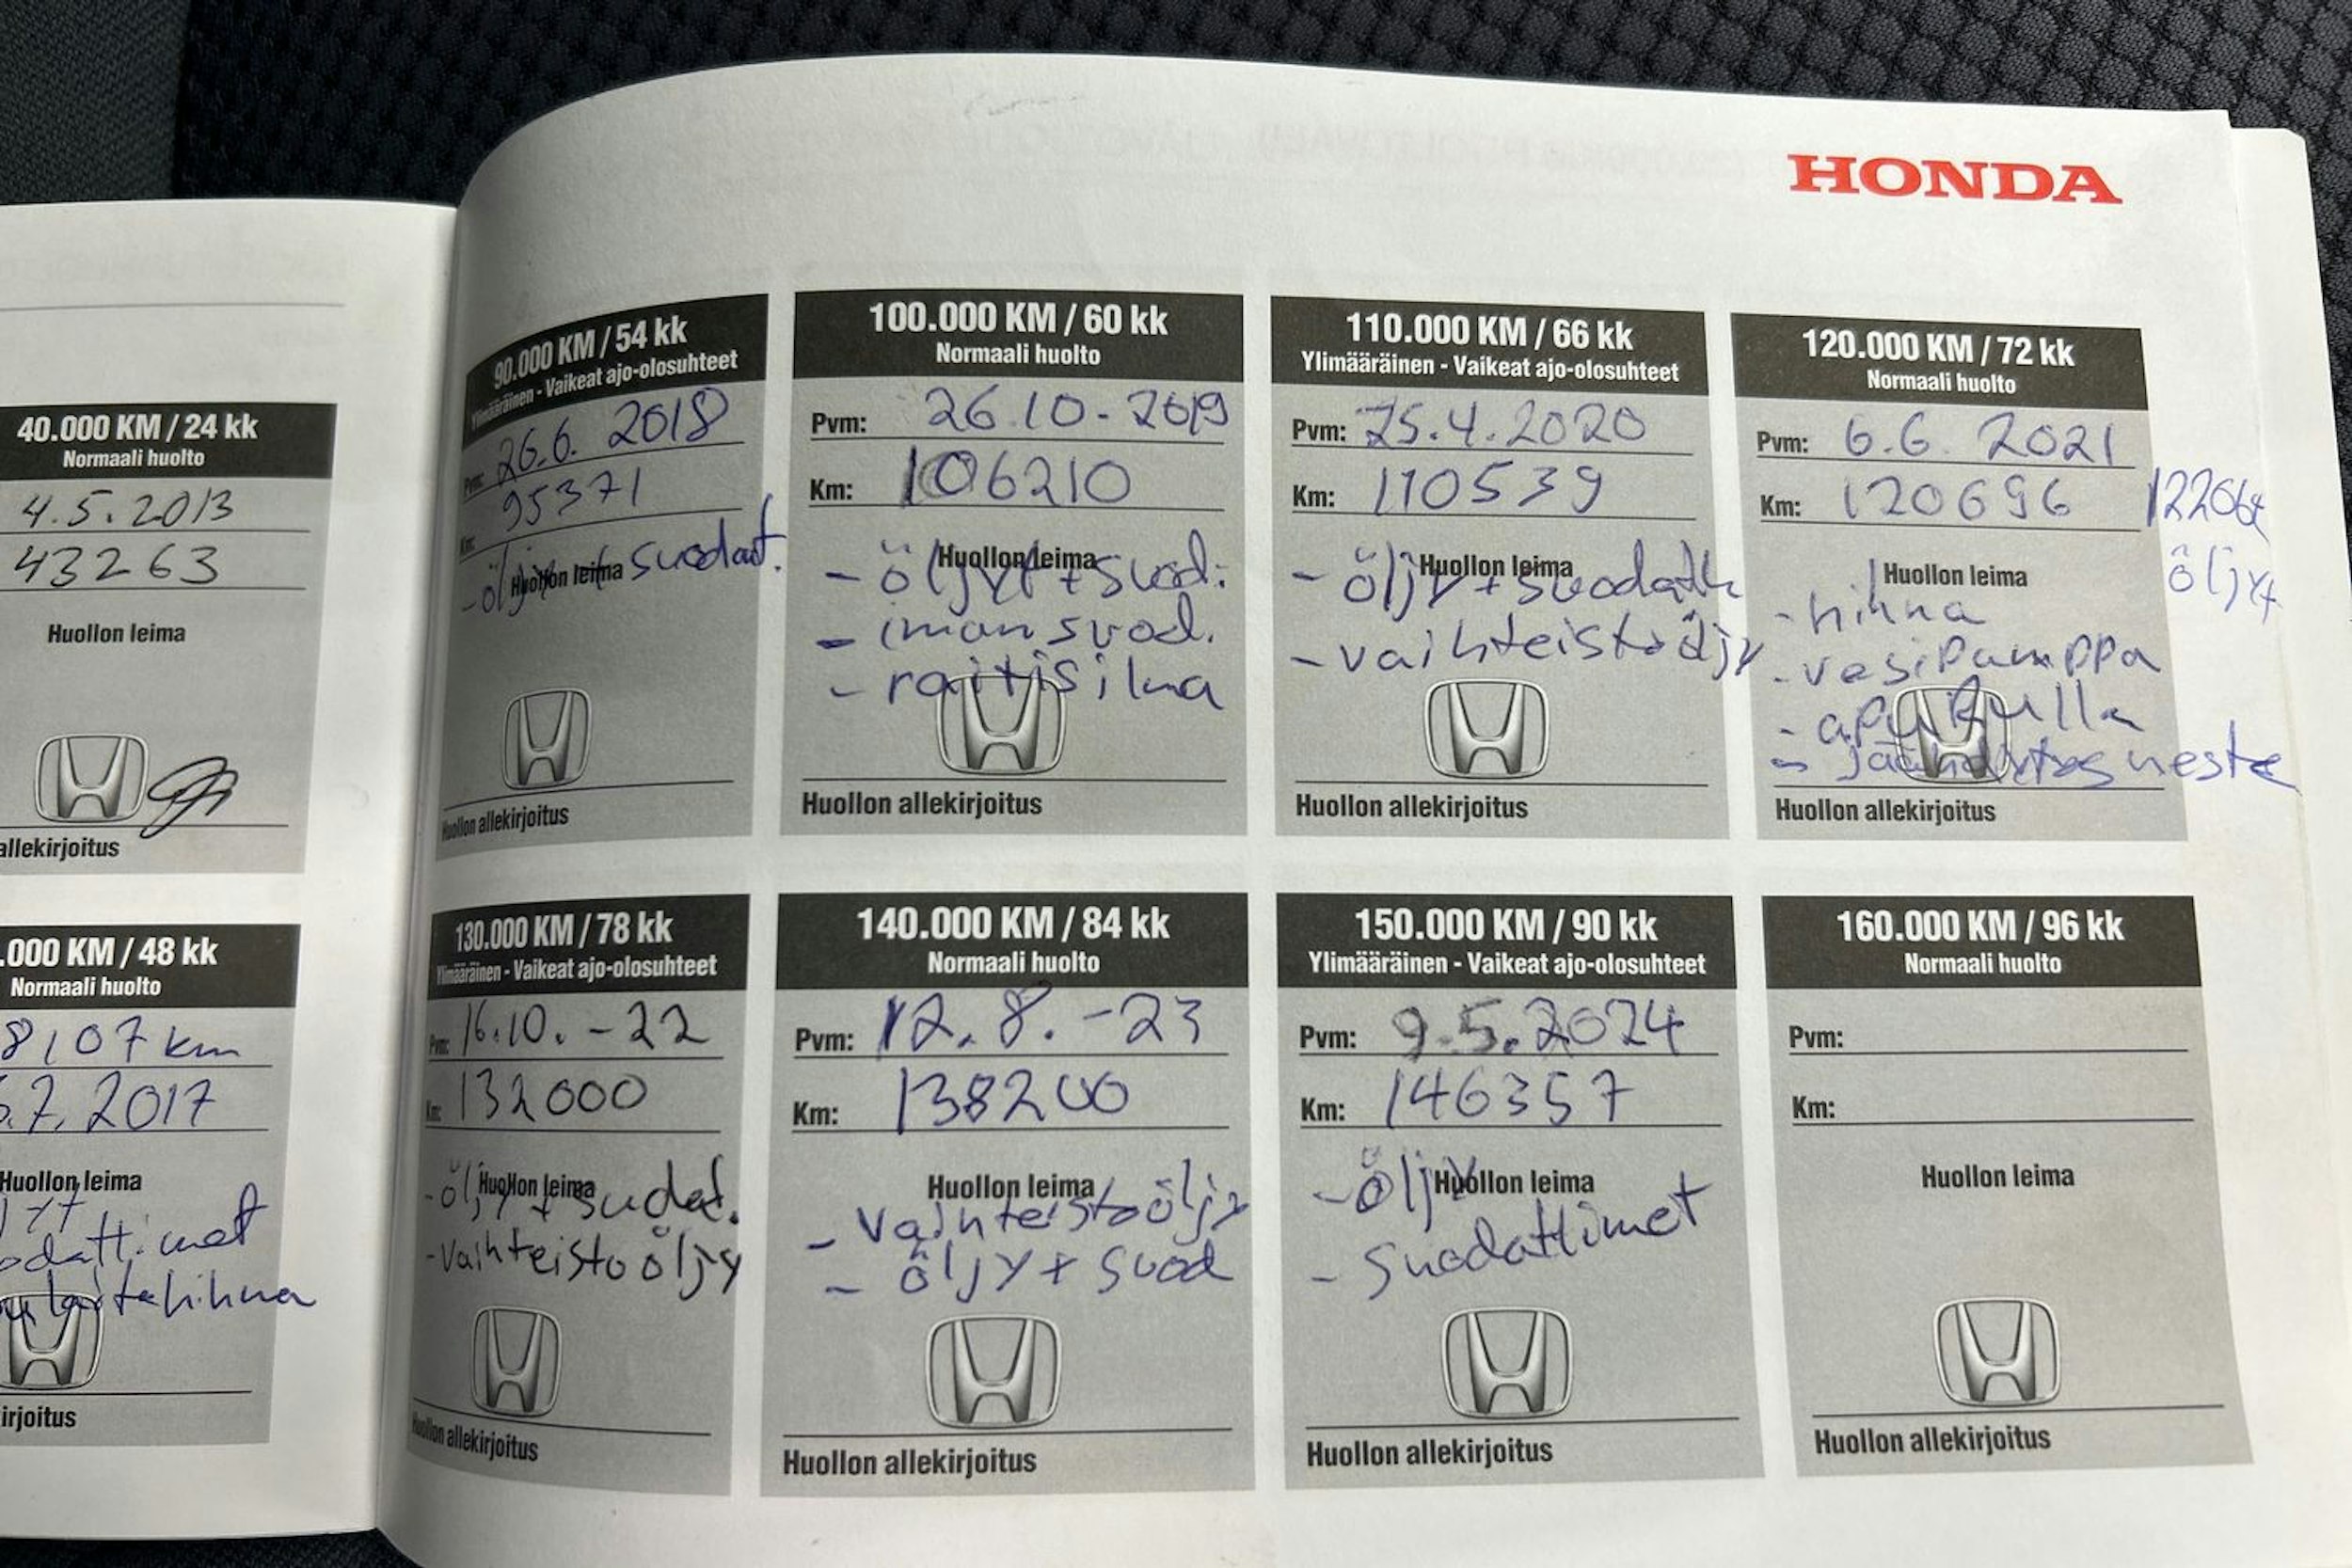 HONDA
40.000 KM / 24 kk
Normaali huolto
4.5.2013
43263
Huollon leima
allekirjoitus
.000 KM / 48 kk
Normaali huolto
8107 km
.7.2017
Huollon leima
irjoitus
90.000 KM / 54 kk
Ylimääräinen - Vaikeat ajo-olosuhteet
Pvm: 26.6. 2018
Km: 95371
Huollon leima
- öljyt + suodat.
Huollon allekirjoitus
100.000 KM / 60 kk
Normaali huolto
Pvm: 26.10-2019
Km: 106210
Huollon leima
- öljyt + suod.
- iman suod.
- raitisilma
Huollon allekirjoitus
110.000 KM / 66 kk
Ylimääräinen - Vaikeat ajo-olosuhteet
Pvm: 25.4.2020
Km: 110539
Huollon leima
- öljy + suodatt
- vaihteistoöljy
Huollon allekirjoitus
120.000 KM / 72 kk
Normaali huolto
Pvm: 6.6. 2021
Km: 120696
öljyt
Huollon leima
- hihna
- vesipumppa
- apurulla
- jäähdytysneste
Huollon allekirjoitus
130.000 KM / 78 kk
Ylimääräinen - Vaikeat ajo-olosuhteet
Pvm: 16.10.-22
Km: 132000
Huollon leima
- öljy + sudat.
- Vaihteistoöljy
Huollon allekirjoitus
140.000 KM / 84 kk
Normaali huolto
Pvm: 12.8.-23
Km: 138200
Huollon leima
- Vaihteistoöljy
- öljy + suod
Huollon allekirjoitus
150.000 KM / 90 kk
Ylimääräinen - Vaikeat ajo-olosuhteet
Pvm: 9.5.2024
Km: 146357
Huollon leima
- öljy
- suodattimet
Huollon allekirjoitus
160.000 KM / 96 kk
Normaali huolto
Pvm:
Km:
Huollon leima
Huollon allekirjoitus